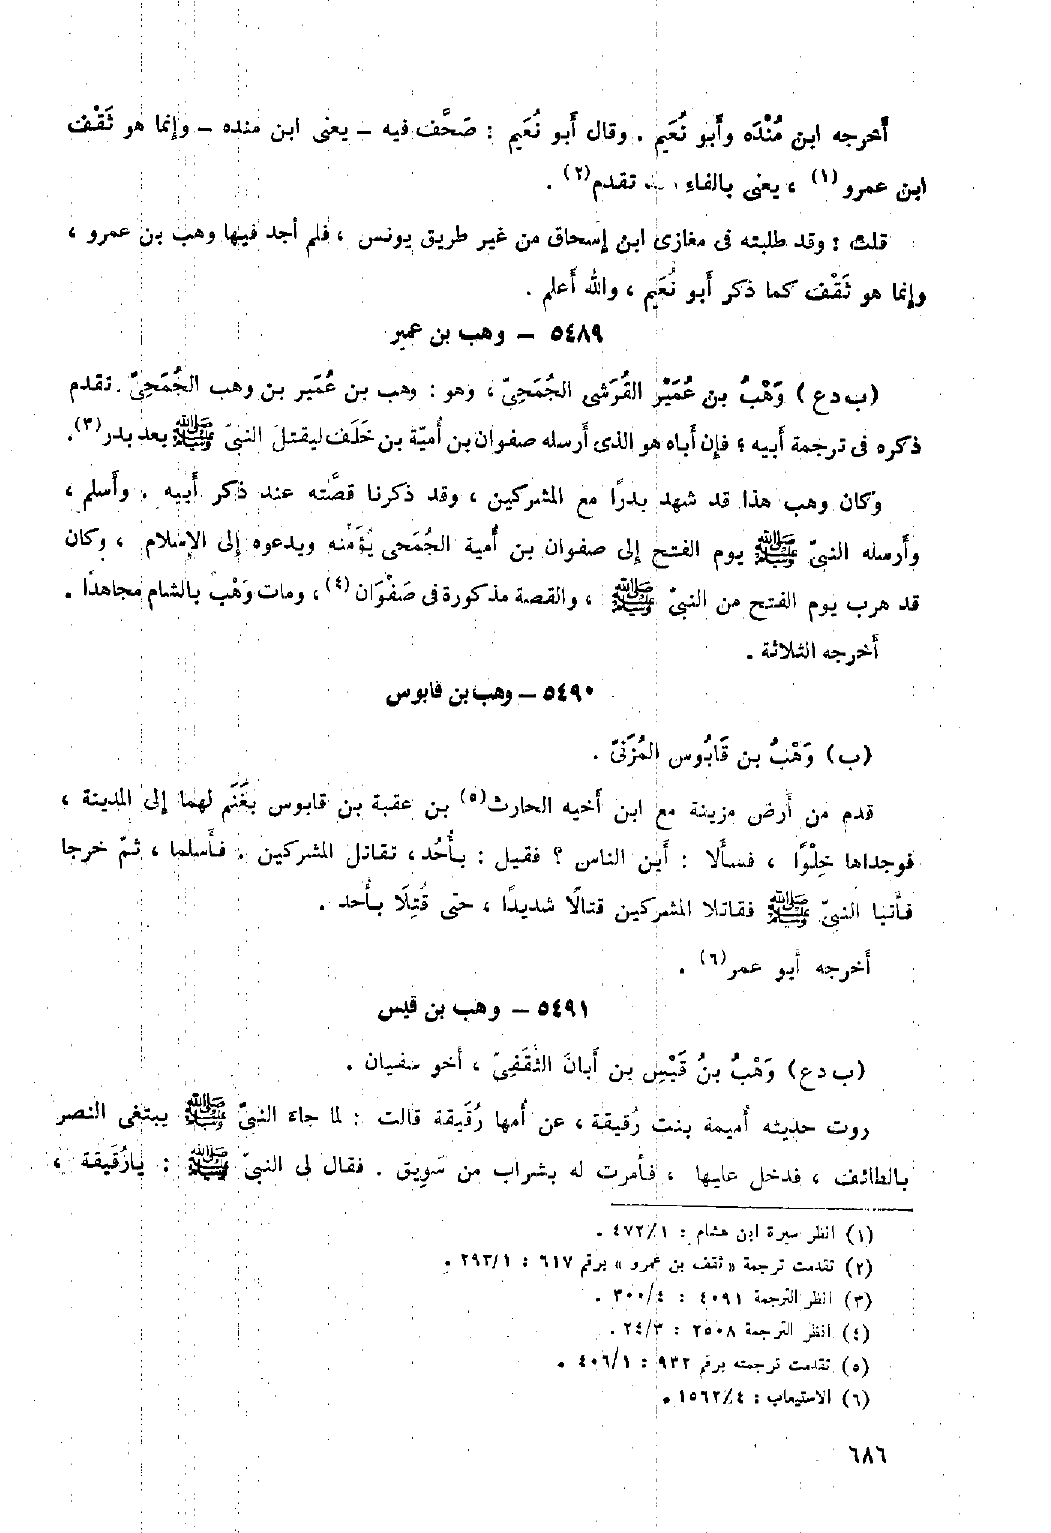 أخرجه ابن مُنْدَه وأبو نُعَيم . وقال أبو نُعَيم : صَحَّف فيه – يعنى ابن منده – وإنما هو ثَقْف
ابن عمرو (١) ، يعنى بالفاء تقدم (٢) .
قلت : وقد طلبته فى مغازى ابن إسحاق من غير طريق يونس ، فلم أجد فيها وهب بن عمرو ،
وإنما هو ثَقْف كما ذكر أبو نُعَيم ، والله أعلم .
٥٤٨٩ – وهب بن عمير
(ب د ع) وَهْبُ بن عُمَيْر القُرَشى الجُمَحِىّ ، وهو : وهب بن عُمَير بن وهب الجُمَحِىّ . تقدم
ذكره فى ترجمة أبيه ؛ فإن أباه هو الذى أرسله صفوان بن أُميّة بن خَلَف ليقتلَ النبىّ ﷺ بعد بدر (٣) .
وكان وهب هذا قد شهد بدرًا مع المشركين ، وقد ذكرنا قصَّته عند ذكر أبيه . وأسلم ،
وأرسله النبىّ ﷺ يوم الفتح إلى صفوان بن أُمية الجُمَحى يُؤَمِّنه ويدعوه إلى الإسلام ، وكان
قد هرب يوم الفتح من النبىّ ﷺ ، والقصة مذكورة فى صَفْوَان (٤) ، ومات وَهْب بالشام مجاهدًا .
أخرجه الثلاثة .
٥٤٩٠ – وهب بن قابوس
(ب) وَهْبُ بن قَابُوس المُزَنىّ .
قدم من أرض مزينة مع ابن أخيه الحارث (٥) بن عقبة بن قابوس بغَنَم لهما إلى المدينة ،
فوجداها خِلْوًا ، فسألا : أين الناس ؟ فقيل : بأُحُد ، تقاتل المشركين . فأسلما ، ثمّ خرجا
فأتيا النبىّ ﷺ فقاتلا المشركين قتالًا شديدًا ، حتى قُتِلَا بأُحد .
أخرجه أبو عمر (٦) .
٥٤٩١ – وهب بن قيس
(ب د ع) وَهْبُ بنُ قَيْس بن أَبانَ الثقَفِىّ ، أخو سفيان .
روت حديثه أُميمة بنت رُقيقة ، عن أُمها رُقَيقة قالت : لما جاء النبىّ ﷺ يبتغى النصر
بالطائف ، فدخل عليها ، فأمرت له بشراب من سَوِيق . فقال لى النبىّ ﷺ : يا رُقَيقة ،
(١) انظر سيرة ابن هشام : ٤٧٢/١ .
(٢) تقدمت ترجمة « ثقف بن عمرو » برقم ٦١٧ : ٢٩٣/١ .
(٣) انظر الترجمة ٤٠٩١ : ٣٠٠/٤ .
(٤) انظر الترجمة ٢٥٠٨ : ٢٤/٣ .
(٥) تقدمت ترجمته برقم ٩٣٢ : ٤٠٦/١ .
(٦) الاستيعاب : ١٥٦٢/٤ .
٦٨٦